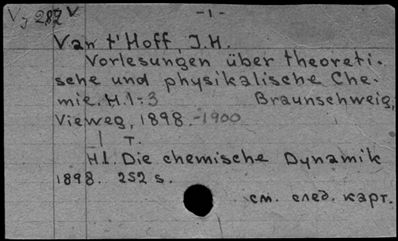 V, 287 V
-1-
Van t'Hoff, J.H.
Vorlesungen über theoreti-
sche und physikalische Che-
mie. H.1-3 Braunschweig,
Vieweg, 1898.-1900
1 т.
H1. Die chemische Dynamik
1898. 252 s.
см. след. карт.